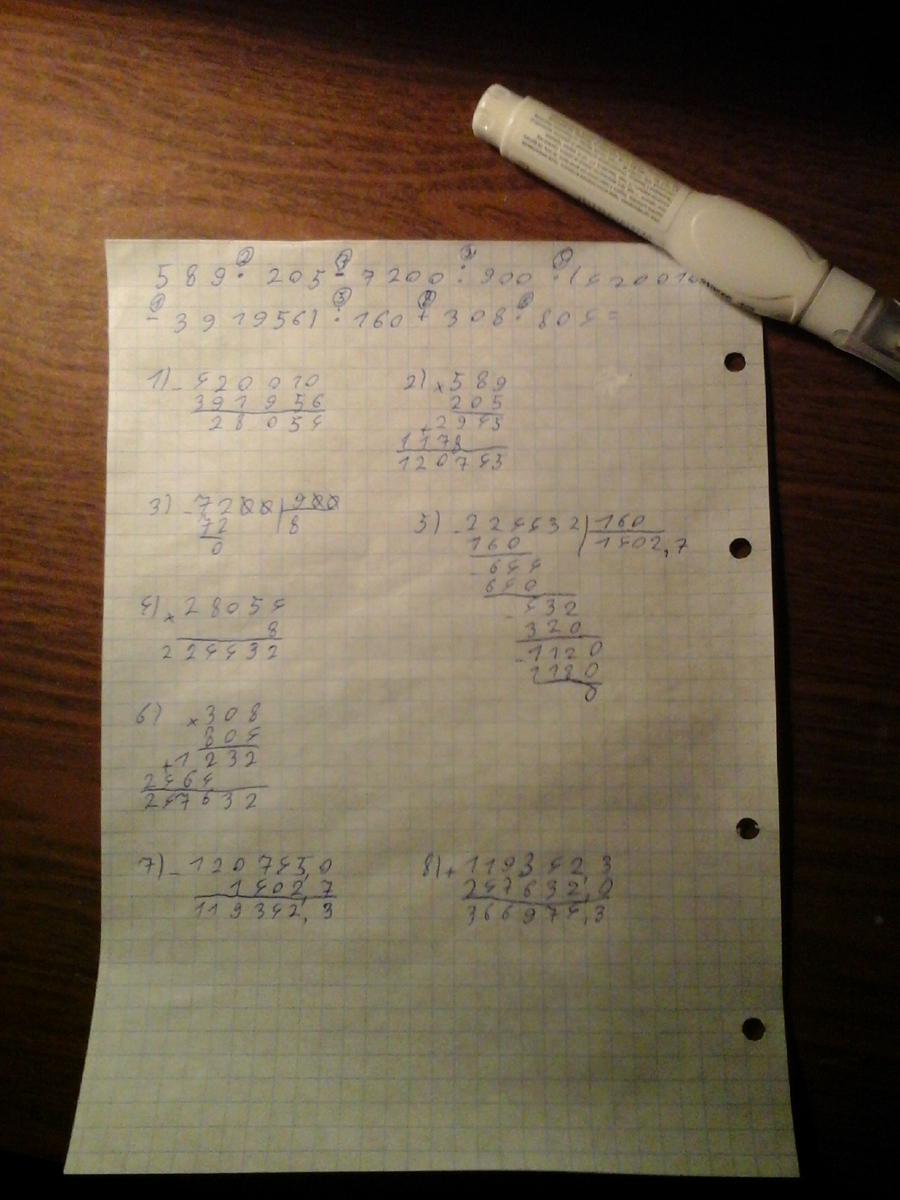 589 · 205 - 7200 : 900 · (420010
- 391956) : 160 + 308 · 804 =
1) - 420010
391956
28054
2) × 589
205
+ 2945
1178
120745
3) - 7200 | 900
72 8
0
5) - 224432 | 160
160 1402,7
- 644
640
- 432
320
- 1120
1120
0
4) × 28054
8
224432
6) × 308
804
+ 1232
2464
247632
7) - 120745,0
1402,7
119342,3
8) + 119342,3
247632,0
366974,3